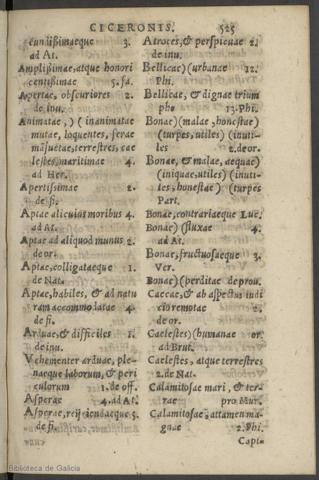 CICERONIS. 525
cundißimaeque 3.
ad At.
Amplißimae, atque honori
centißimae 5. fa.
Apertae, obscuriores 2.
de inu.
Animatae, ) ( inanimatae
mutae, loquentes, ferae
māsuetae, terrestres, cae
lestes, maritimae 4.
ad Her.
Apertißimae 2.
de fi.
Aptae alicuius moribus 4.
ad At.
Aptae ad aliquod munus 2.
de or.
Aptae, colligataeque 1.
de Nat.
Aptae, habiles, & ad natu
ram accommodatae 4.
de fi.
Arduae, & difficiles 1.
de inu.
Vehementer arduae, ple-
naeque laborum, & peri
culorum 1. de off.
Asperae 4. ad At.
Asperae, reijciendaeque 5.
de fi.
Atroces, & perspicuae 2.
de inu.
Bellicae) (urbanae 12.
Phi.
Bellicae, & dignae trium
pho 13. Phi.
Bonae) (malae, honestae)
(turpes, utiles) (inuti-
les 2. de or.
Bonae, & malae, aequae)
(iniquae, utiles) (inuti-
les, honestae) (turpes
Part.
Bonae, contrariaeque Luc.
Bonae) (fluxae 4.
ad At.
Bonae, fructuosaeque 3.
Ver.
Bonae) (perditae de prou.
Caecae, & ab aspectus iudi
cio remotae 2.
de or.
Caelestes) (humanae or.
ad Brut.
Caelestes, atque terrestres
2. de Nat.
Calamitosae mari, & ter-
rae pro Mur.
Calamitosae: attamen ma-
gnae 2. Phi.
Capta-
Biblioteca de Galicia